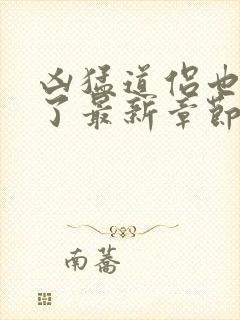 凶猛道侣也
了最新章节
南蔷